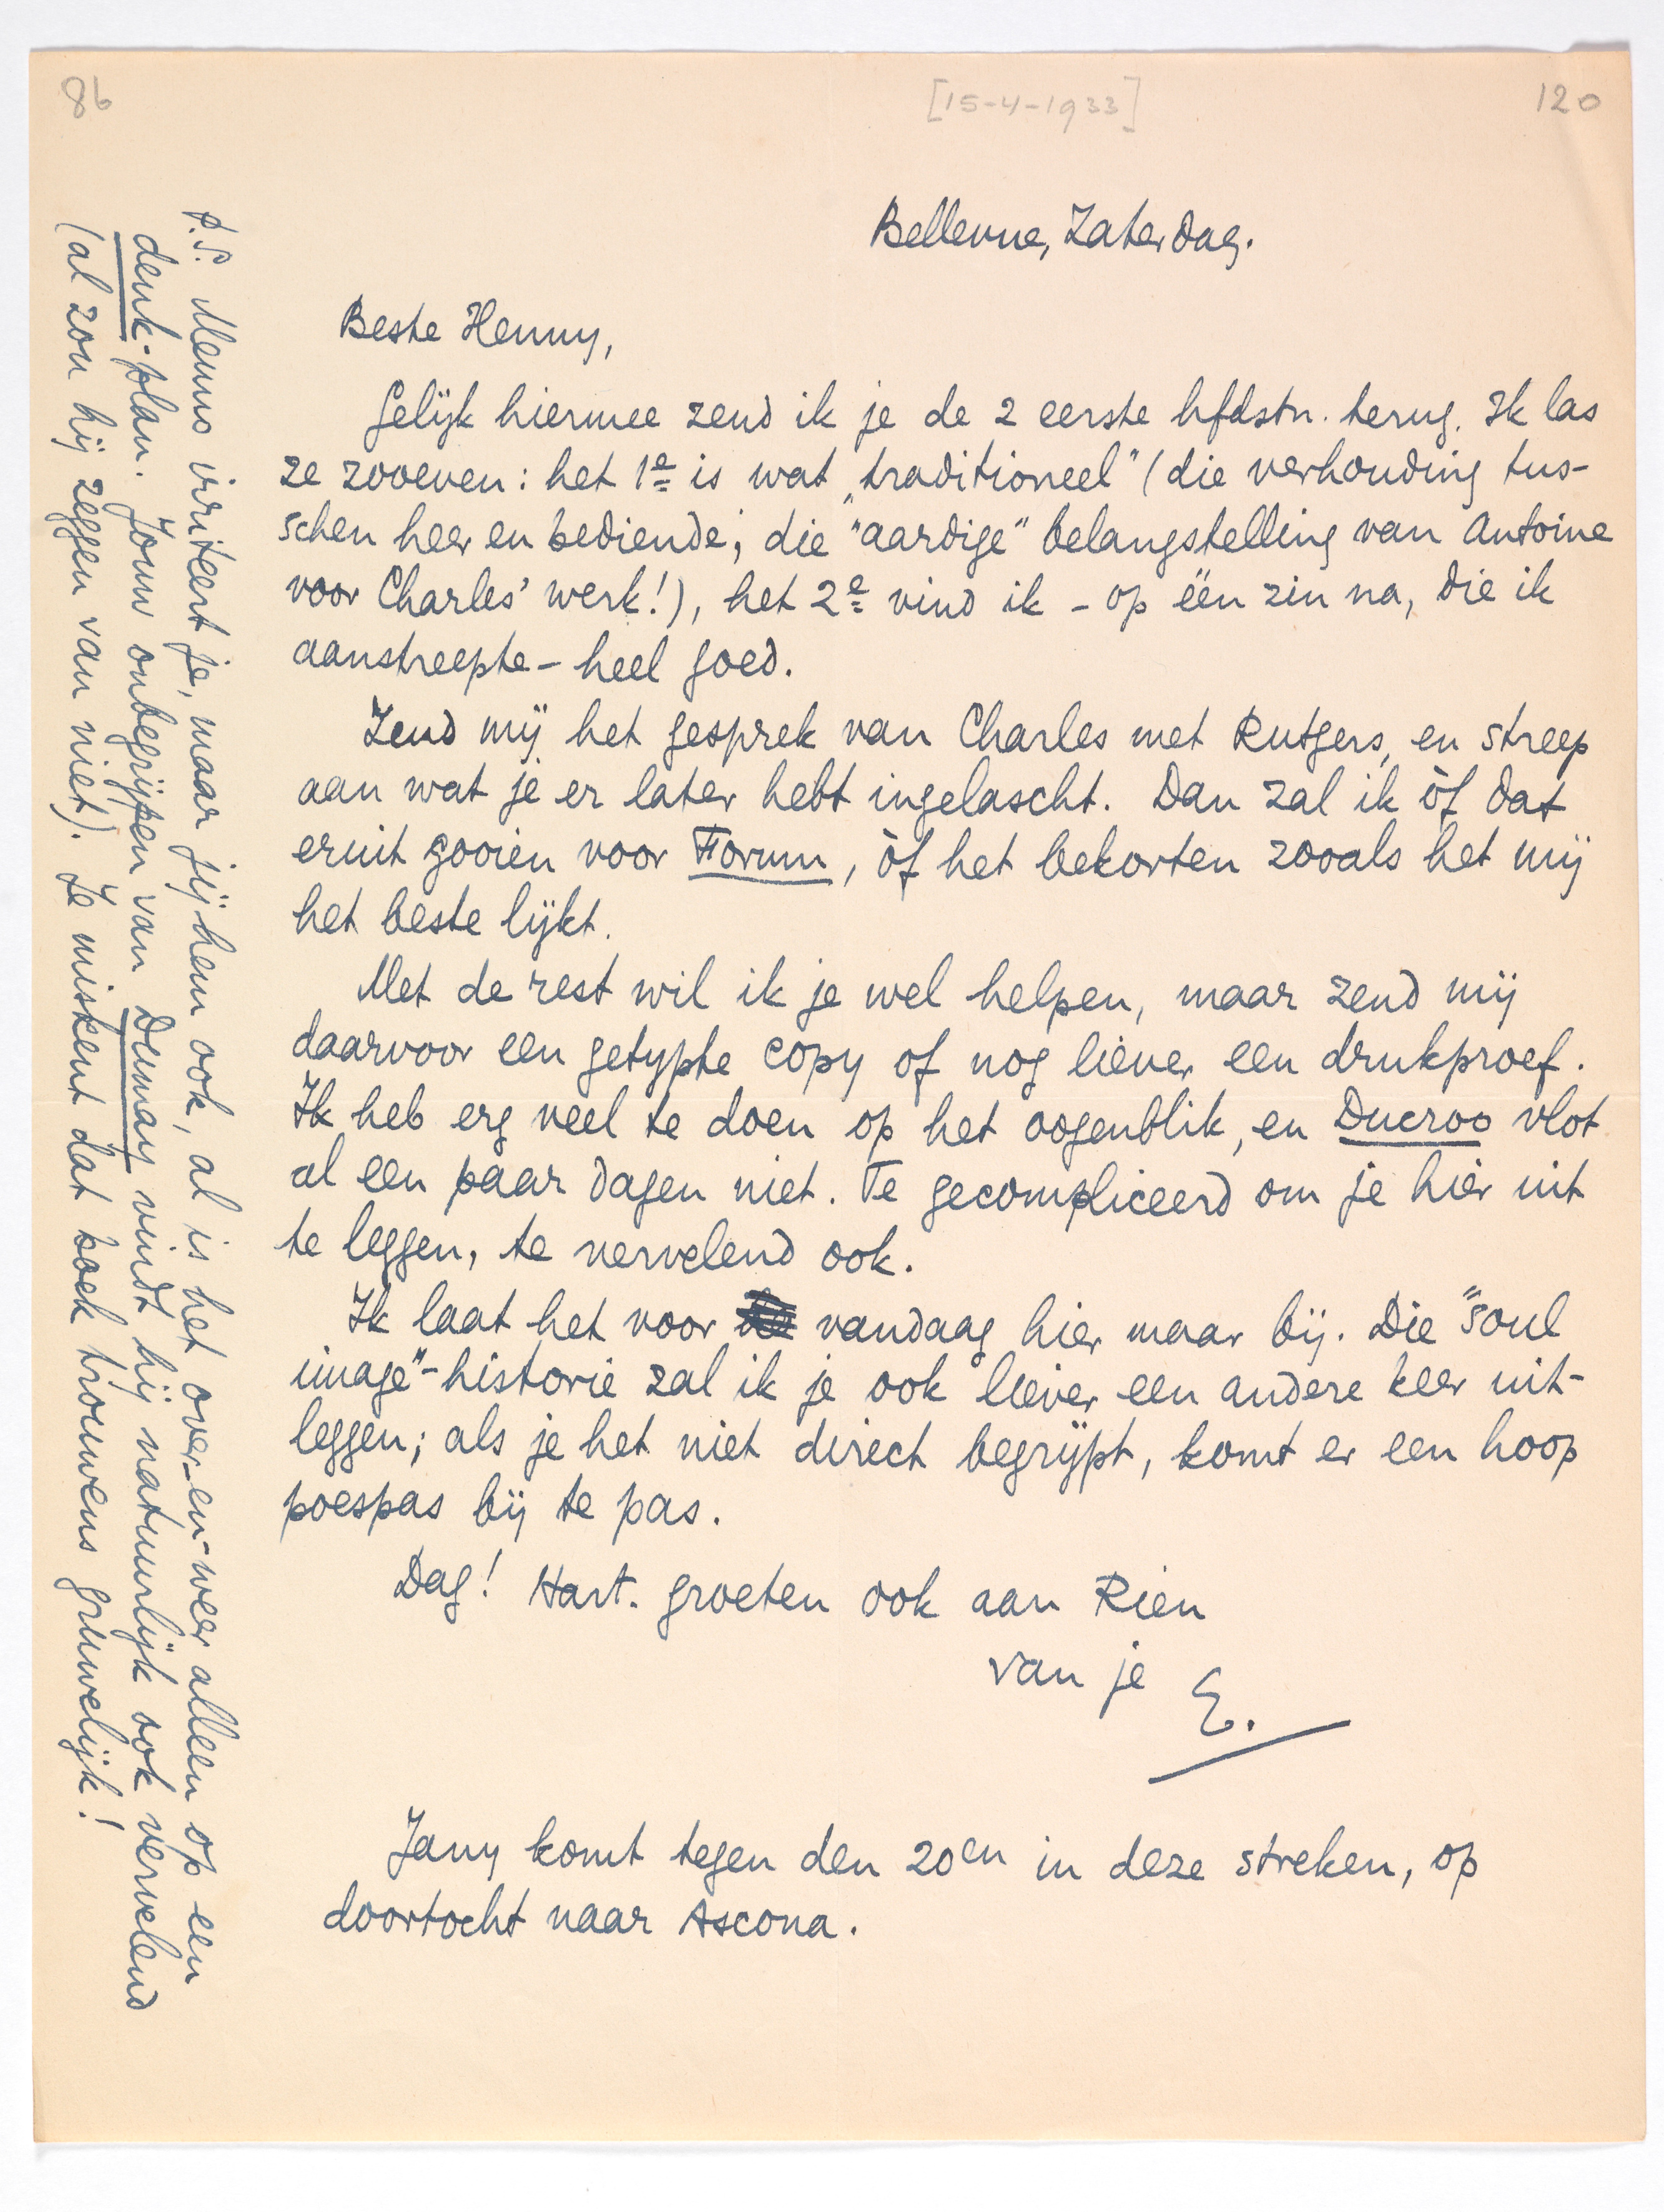 86
[15-4-1933]
120
Bellevue, Zaterdag.
Beste Henny,
Gelijk hiermee zend ik je de 2 eerste hfdstn. terug. Ik las
ze zooeven: het 1e is wat „traditioneel” (die verhouding tus-
schen heer en bediende; die “aardige” belangstelling van Antoine
voor Charles' werk!), het 2e vind ik - op één zin na, die ik
aanstreepte - heel goed.
Zend mij het gesprek van Charles met Rutgers, en streep
aan wat je er later hebt ingelascht. Dan zal ik òf dat
eruit gooien voor Forum, òf het bekorten zooals het mij
het beste lijkt.
Met de rest wil ik je wel helpen, maar zend mij
daarvoor een getypte copy of nog liever een drukproef.
Ik heb erg veel te doen op het oogenblik, en Ducroo vlot
al een paar dagen niet. Te gecompliceerd om je hier uit
te leggen, te vervelend ook.
Ik laat het voor vandaag hier maar bij. Die “soul
image”-historie zal ik je ook liever een andere keer uit-
leggen; als je het niet direct begrijpt, komt er een hoop
poespas bij te pas.
Dag! Hart. groeten ook aan Rien
van je E.
Jany komt tegen den 20en in deze streken, op
doortocht naar Ascona.
P.S. Menno irriteert je, maar jij hem ook, al is het over-en-weer alleen op een
denk-plan. Jouw onbegrijpen van Dumay vindt hij natuurlijk ook vervelend
(al zou hij zeggen van niet). Je miskent dat boek trouwens gruwelijk!